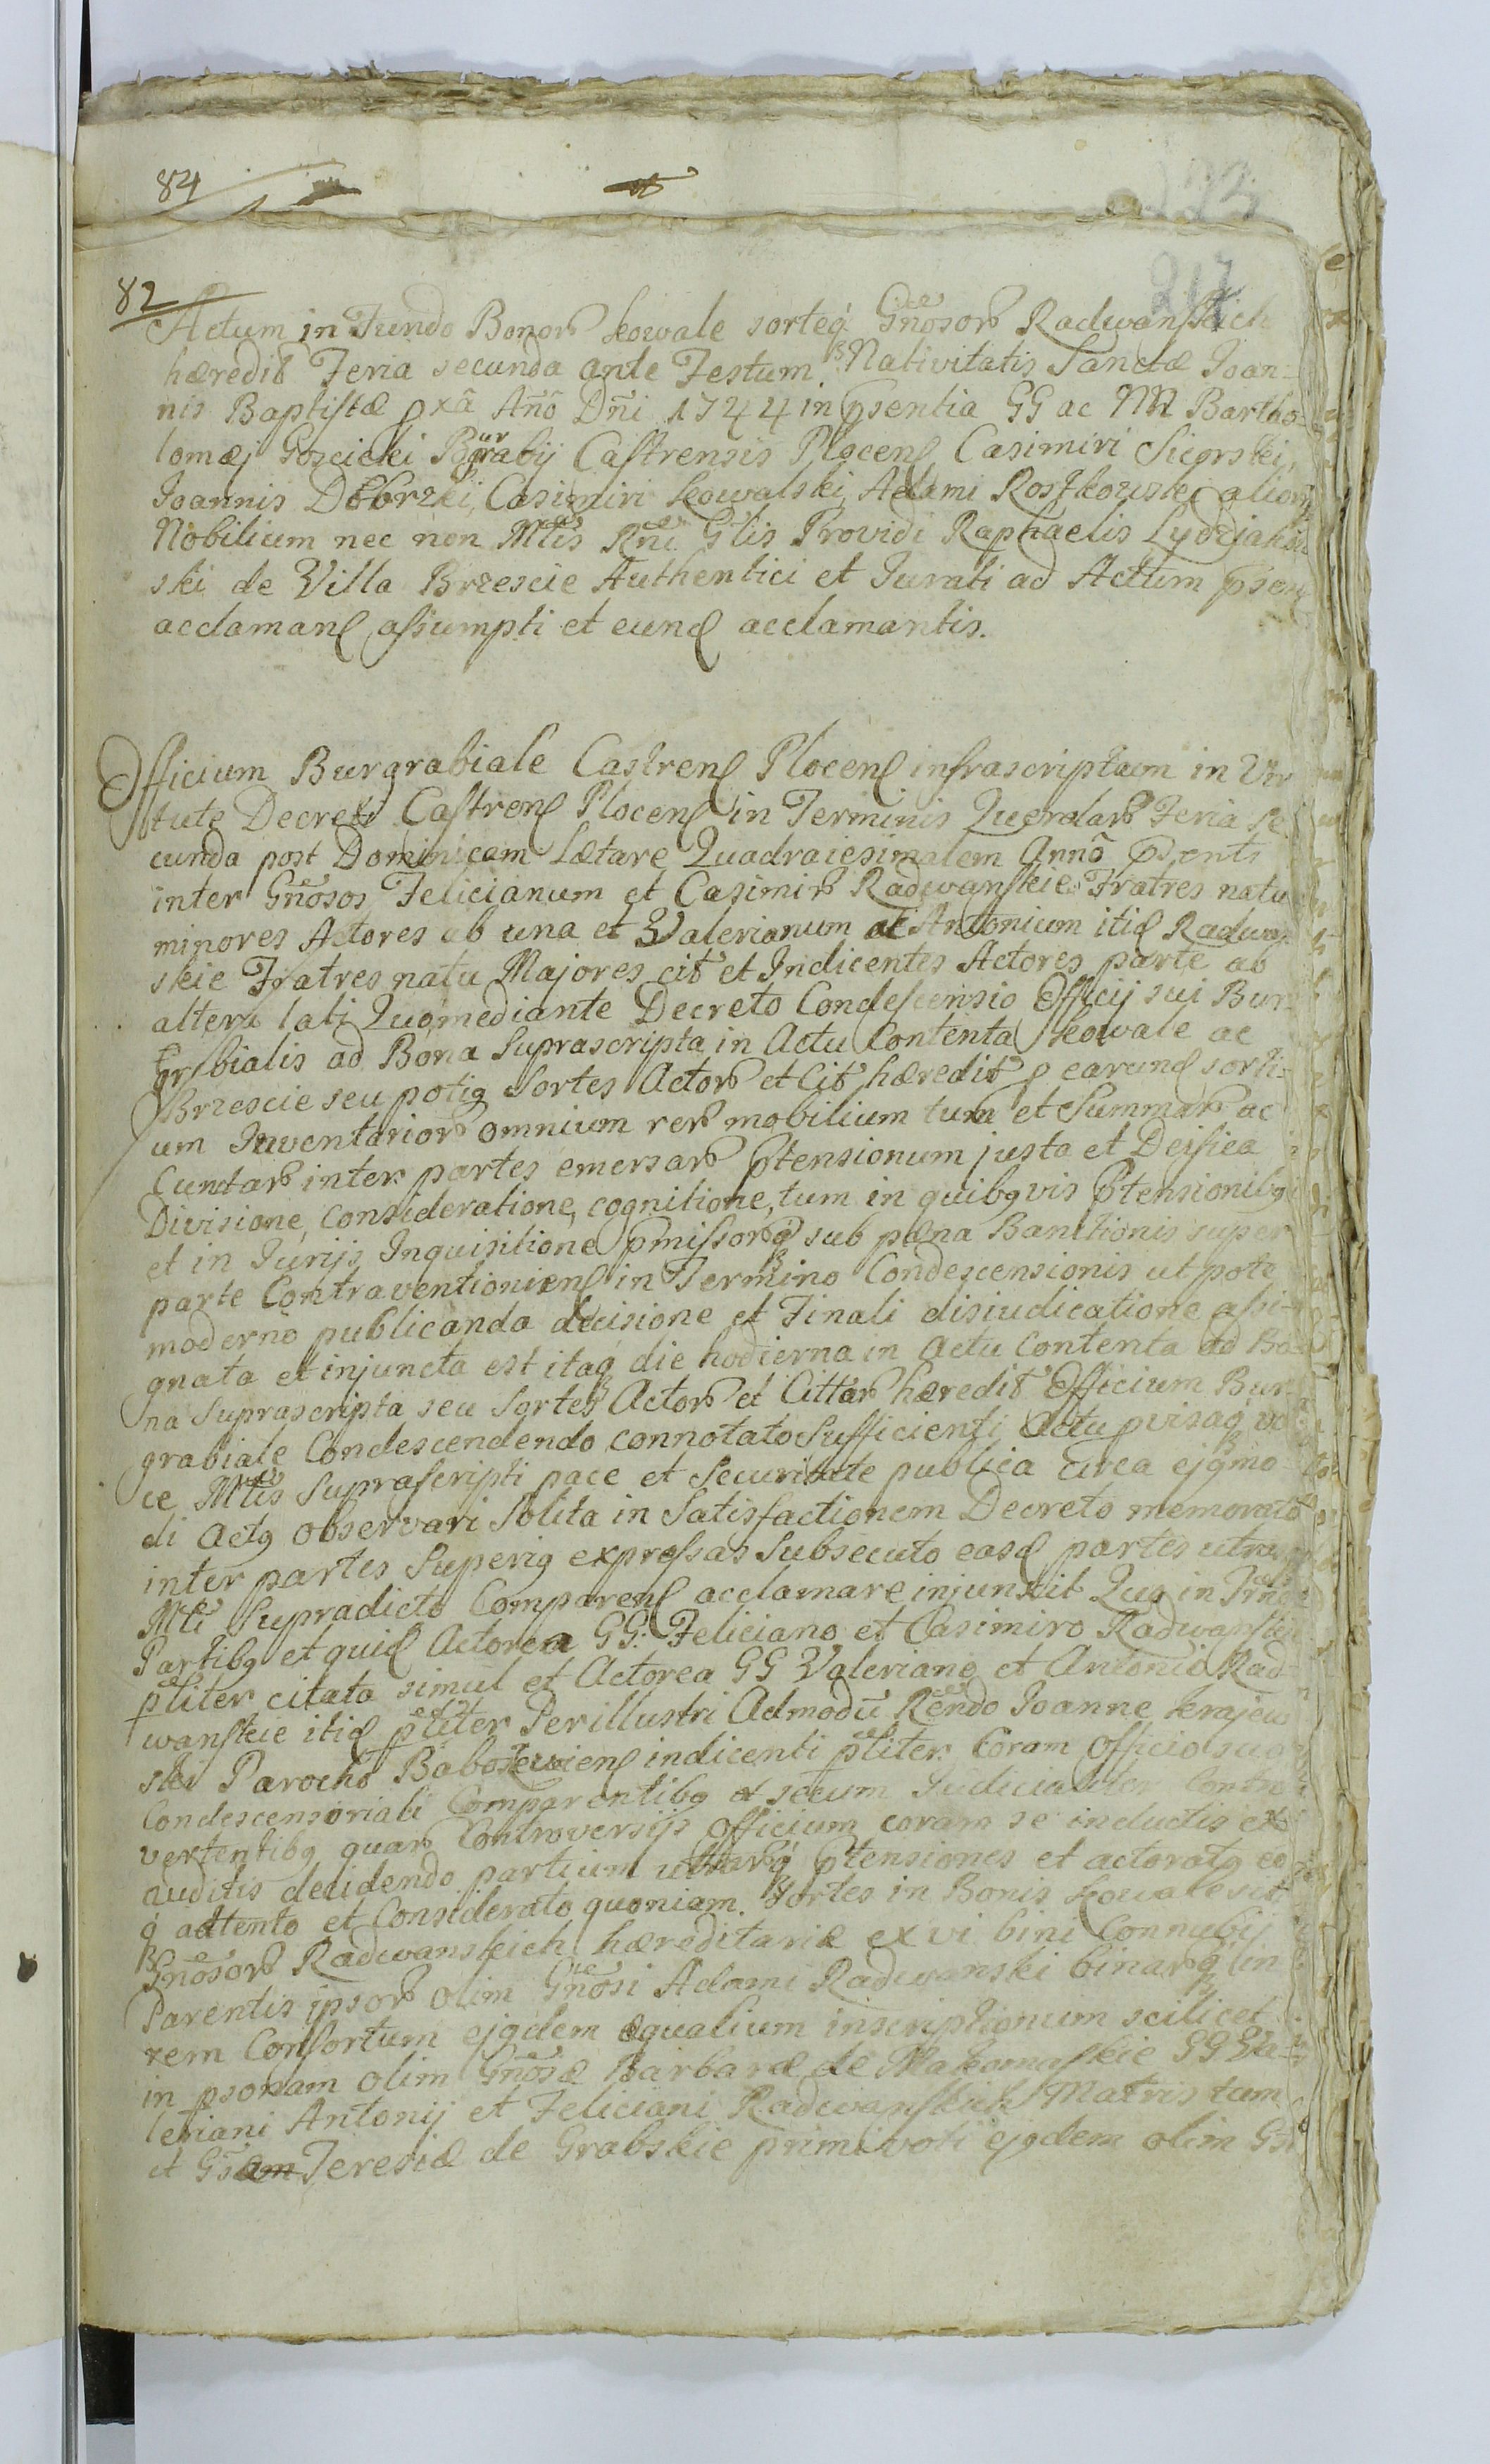 84
82
217
Actum in Fundo Bonorꝫ Kowale sorteq́ꝫ Gñosorꝫ Radwanskich
hæredit̃ Feria secunda ante Festum Nativitatis Sanctæ Joan-
nis Baptistæ pxã Añõ Dñi 1744 in p̃sentia GG ac NN Bartho-
lomæj Goscicki Burgrabij Castrensis Plocenʃ Casimiri Sierski,
Joannis Dobrzki, Casimiri Kowalski, Adami Rostkowski aliorꝫ
Nobilium nec non Mtis Rñi Gĩlis Providi Raphaelis
ski de Villa Brzescie Authentici et Jurati ad Actum p̃senʃ
acclamanʃ assumpti et eunʃ acclamantis.
Officium Burgrabiale Castrenʃ Plocenʃ infrascriptum in Vir
tute Decreti Castrenʃ Plocenʃ in Terminis Querelarꝫ Feria Se
cunda post Dominicam Lætare Quadragesimalem Annõ p̃senti
inter Gñosos Felicianum et Casimirꝫ Radwanskie Fratres natu
minores Actores ab una et Valerianum ac Antonium itiʃ Radwan
skie Fratres natu Majores cit̃ et Indicentes Actores parte ab
altera lati Quo mediante Decreto Condescensio Officij sui Bur-
grabialis ad Bona Suprascripta in Actu Contenta Kowale ac
Brzescie seu potiꝰ Sortes Actorꝫ et Cit̃ hæredit̃ p earunʃ sorti-
um Inventariorꝫ omnium rerꝫ mobilium tum et Summarꝫ ac
Cunctarꝫ inter partes emersarꝫ p̃tensionum justa et Deifica
Divisione, Consideratione, cognitione, tum in quibꝰvis p̃tensionibꝰ
et in Jurijs Inquisitione p̃missorq́ꝫ sub pæna Bannitionis super
parte Contravenienʃ in Termino Condescensionis ut pote
moderno publicanda decisione et Finali disiudicatione assi-
gnata et injuncta est itaq́ꝫ die hodierna in Actu Contenta ad Bo-
na Suprascripta seu Sortes Actorꝫ et Cittarꝫ hæredit̃ Officium Bur-
grabiale Condescendendo connotato Sufficienti Actu pvisaq́ꝫ vo
ce Mtis Suprascripti pace et Securitate publica circa ejꝰmo
di Actꝰ observari Solita in Satisfactionem Decreto memorato
inter partes Superiꝰ expressas Subsecuto easʃ partes utrasqꝫ
Mti Supradicto Comparenʃ acclamare injunxit Quo in Trño
Partibꝰ et quiʃ Actorea GG: Feliciano et Casimiro Radwanskie
p̃liter citata simul et Actorea GG Valeriano et Antonio Rad-
wanskie itiʃ p̃liter Perillustri Admodũ Rẽndo Joanne Krajew
ski Parocho Baboszewienʃ indicenti p̃liter. Coram Officio suo
Condescensoriali Comparentibꝰ et secum Judicialiter Contro
vertentibꝰ quarꝫ Controversijs Officium coram se inductis ex
auditis decidendo partium utrarq́ꝫ p̃tensiones et actoratꝰ eo
q́ꝫ attento et Considerato quoniam Sortes in Bonis Kowale sit
Gñosorꝫ Radwanskich hæreditariæ ex vi bini Connubij
Parentis ipsorꝫ olim Gñosi Adami Radwanski binarq́ꝫ in
rem Consortum ejꝰdem æqualium inscriptionum scilicet
in psonam olim Gñosæ Barbaræ de Makomaskie GG Va-
leriani Antonij et Feliciani Radwanskich Matris tum
et Teresiæ de Grabskie primi voti ejꝰdem olim Gsi